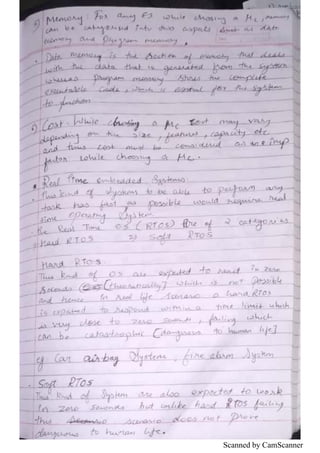 5) Memory: For any ES while choosing a MC, memory
can be categorised into two aspects such as data
memory and Program memory.
• Data memory is the section of memory that deals
with the data that is generated from the system
whereas Program memory stores the complete
executable code, which is essential for the system
to function
6) Cost: While choosing a MC cost may vary
depending on the size, features, capacity etc
and thus cost must be considered as an imp
factor while choosing a MC.
• Real Time embedded Systems:
This kind of Systems to be able to perform any
task has fast as possible would require real
time operating System
• the Real Time OS (RTOS) are of 2 categories
1) Hard RTOS 2) Soft RTOS
Hard RTOS:
This kind of OS are expected to react in zero
seconds [theoretically] which is not possible
and hence in real life scenario a hard RTOS
is expected to respond within a time limit which
is very close to zero seconds, failing which
can be catastrophic [dangerous to human life]
eg Car airbag Systems, fire alarm System
• Soft RTOS
This kind of System are also expected to work
in zero seconds but unlike hard RTOS failing
this scenario does not prove
dangerous to human life.
Scanned by CamScanner